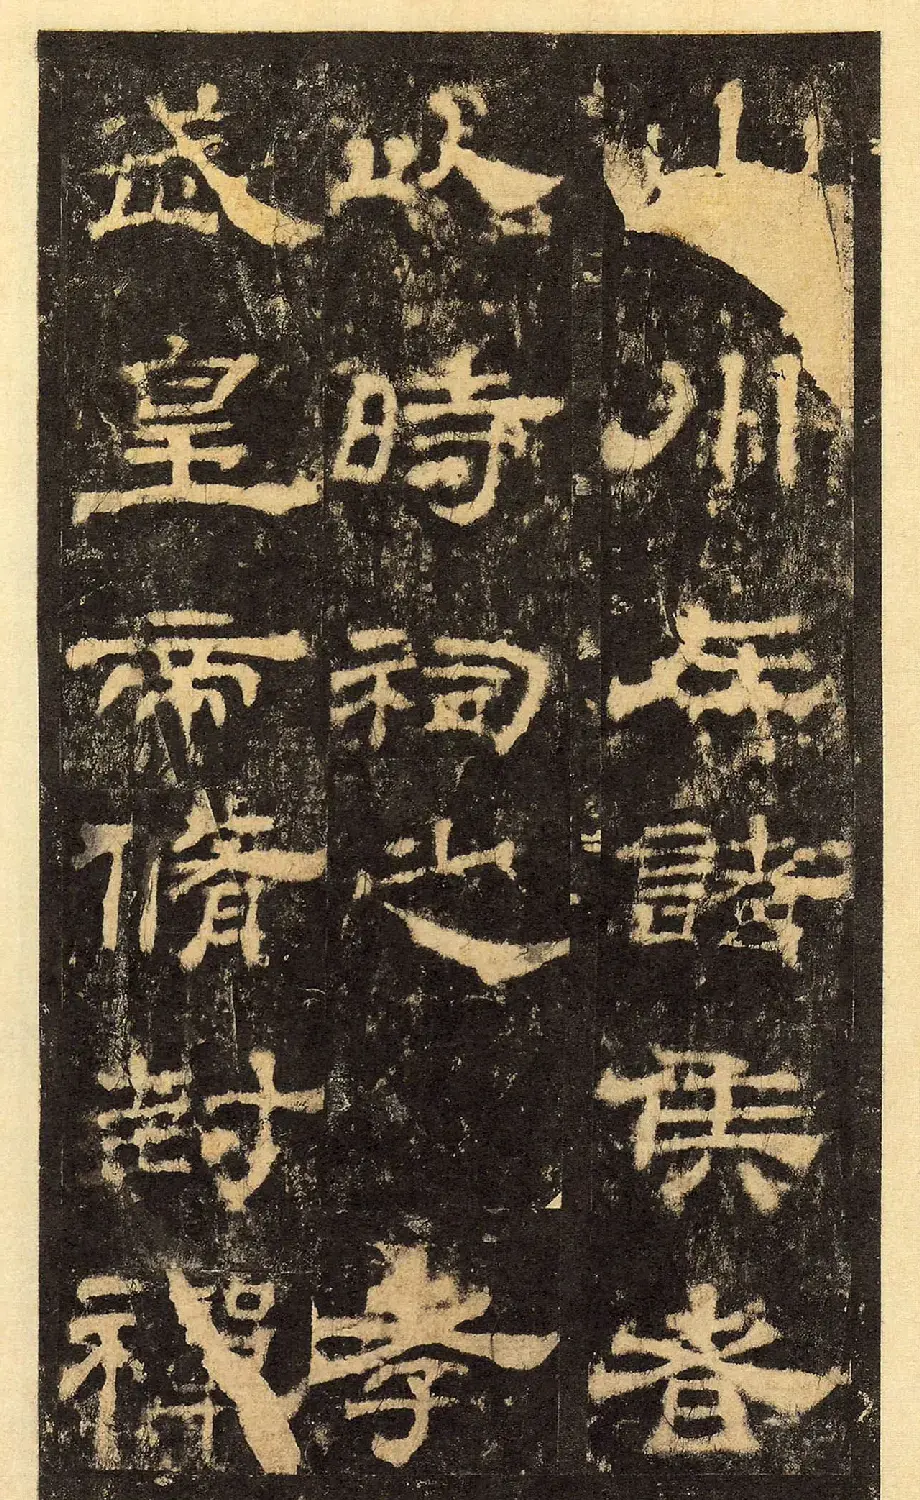 山川在諸侯者
以時祠之孝
武皇帝脩封禪